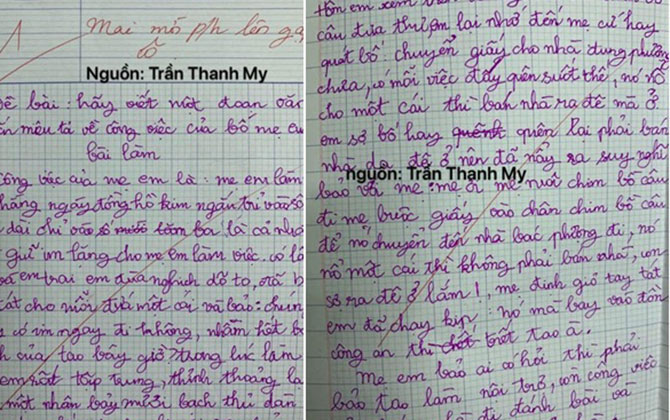 1
Mai mời p/h lên gặ
cô
Nguồn: Trần Thanh My
ề bài: hãy viết một đoạn văn
miêu tả về công việc của bố mẹ em
bài làm
công việc của mẹ em là: mẹ em làm
hàng ngày đồng hồ kim ngắn trỉ vào số
dài chỉ vào số mười lăm ba là cả nhà
giữ im lặng cho mẹ em làm việc. có lầ
và em trai em đùa nghịch dổ to, mẹ
tát cho mỗi đứa một cái và bảo: chún
có im ngay đi không, nhầm hết
của tao bây giờ, trong lúc làm
em rất tập trung, thỉnh thoảng
một nhân bảy mươi bạch thủ dàn
hôn em xem
câu đưa thượn lại nhớ đến mẹ cứ hay
quát bố: chuyển giấy cho nhà dung phường
chưa, có mỗi việc đấy quên suốt thế, nó nổ
cho một cái thì bán nhà ra đê mà ở
em sợ bố hay quên lại phải bán
nhà ra đê ở nên đã nảy ra suy nghĩ
bảo với mẹ: mẹ ơi mẹ nuôi chim bồ câu
đi mẹ buộc giấy vào chân chim bồ câu
để nó chuyển đến nhà bác phường đi, nó
nổ một cái thì không phải bán nhà, con
sợ ra đê ở lắm!, mẹ định giơ tay tát
em đã chạy kịp: nó mà bay vào đồn
công an thì chết tao à.
Mẹ em bảo ai có hỏi thì phải
bảo tao làm nội trợ, còn công việc
đi đánh bài và
nguồn: Trần Thanh My